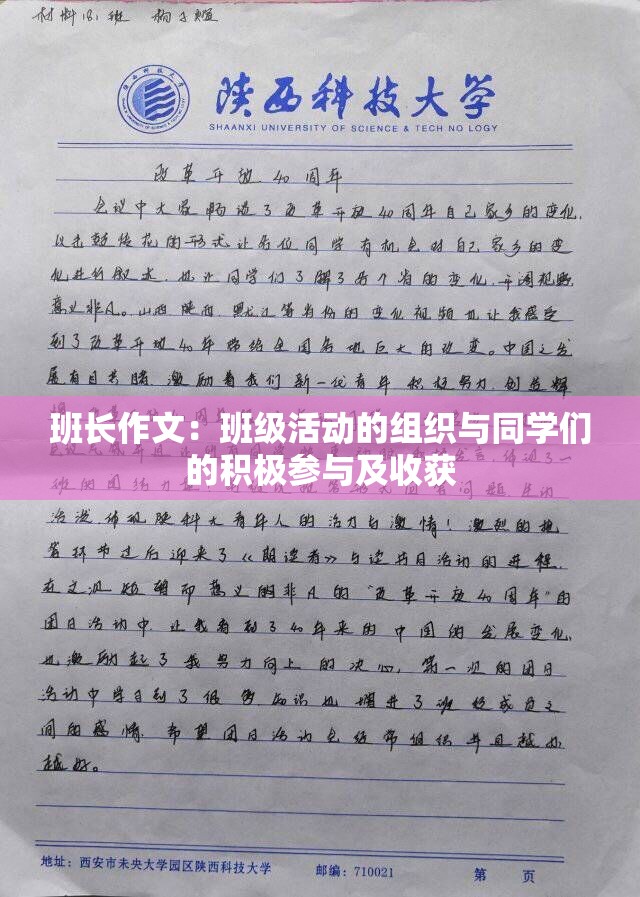 材料181班 杨
陕西科技大学
SHAANXI UNIVERSITY OF SCIENCE & TECH NO LOGY
改革开放40周年
会议中大家畅谈了改革开放40周年自己家乡的变化,
以击鼓传花的形式让各位同学有机会对自己家乡的变
化进行叙述,也让同学们了解了各个省的变化,开阔视野
意义非凡。山西陕西,黑龙江等省份的变化视频也让我感受
到了改革开放40年带给全国各地巨大的改变。中国之发
展有目共睹,激励着我们新一代青年积极努力,创造辉
班长作文：班级活动的组织与同学们
的积极参与及收获
洽谈,体现陕科大青年人的活力与激情！激烈的抢
答环节过后迎来了《朗读者》与读书日活动的进程,
在这次短暂而意义的非凡的“改革开放40周年”的
团日活动中让我看到了40年来的中国的发展变化,
也激励起了我努力向上的决心,第一次的团日
活动中学习到了很多知识也增进了班级成员之
间的感情,希望团日活动包经常组织并且越办
越好。
地址：西安市未央大学园区陕西科技大学 邮编：710021 第 页